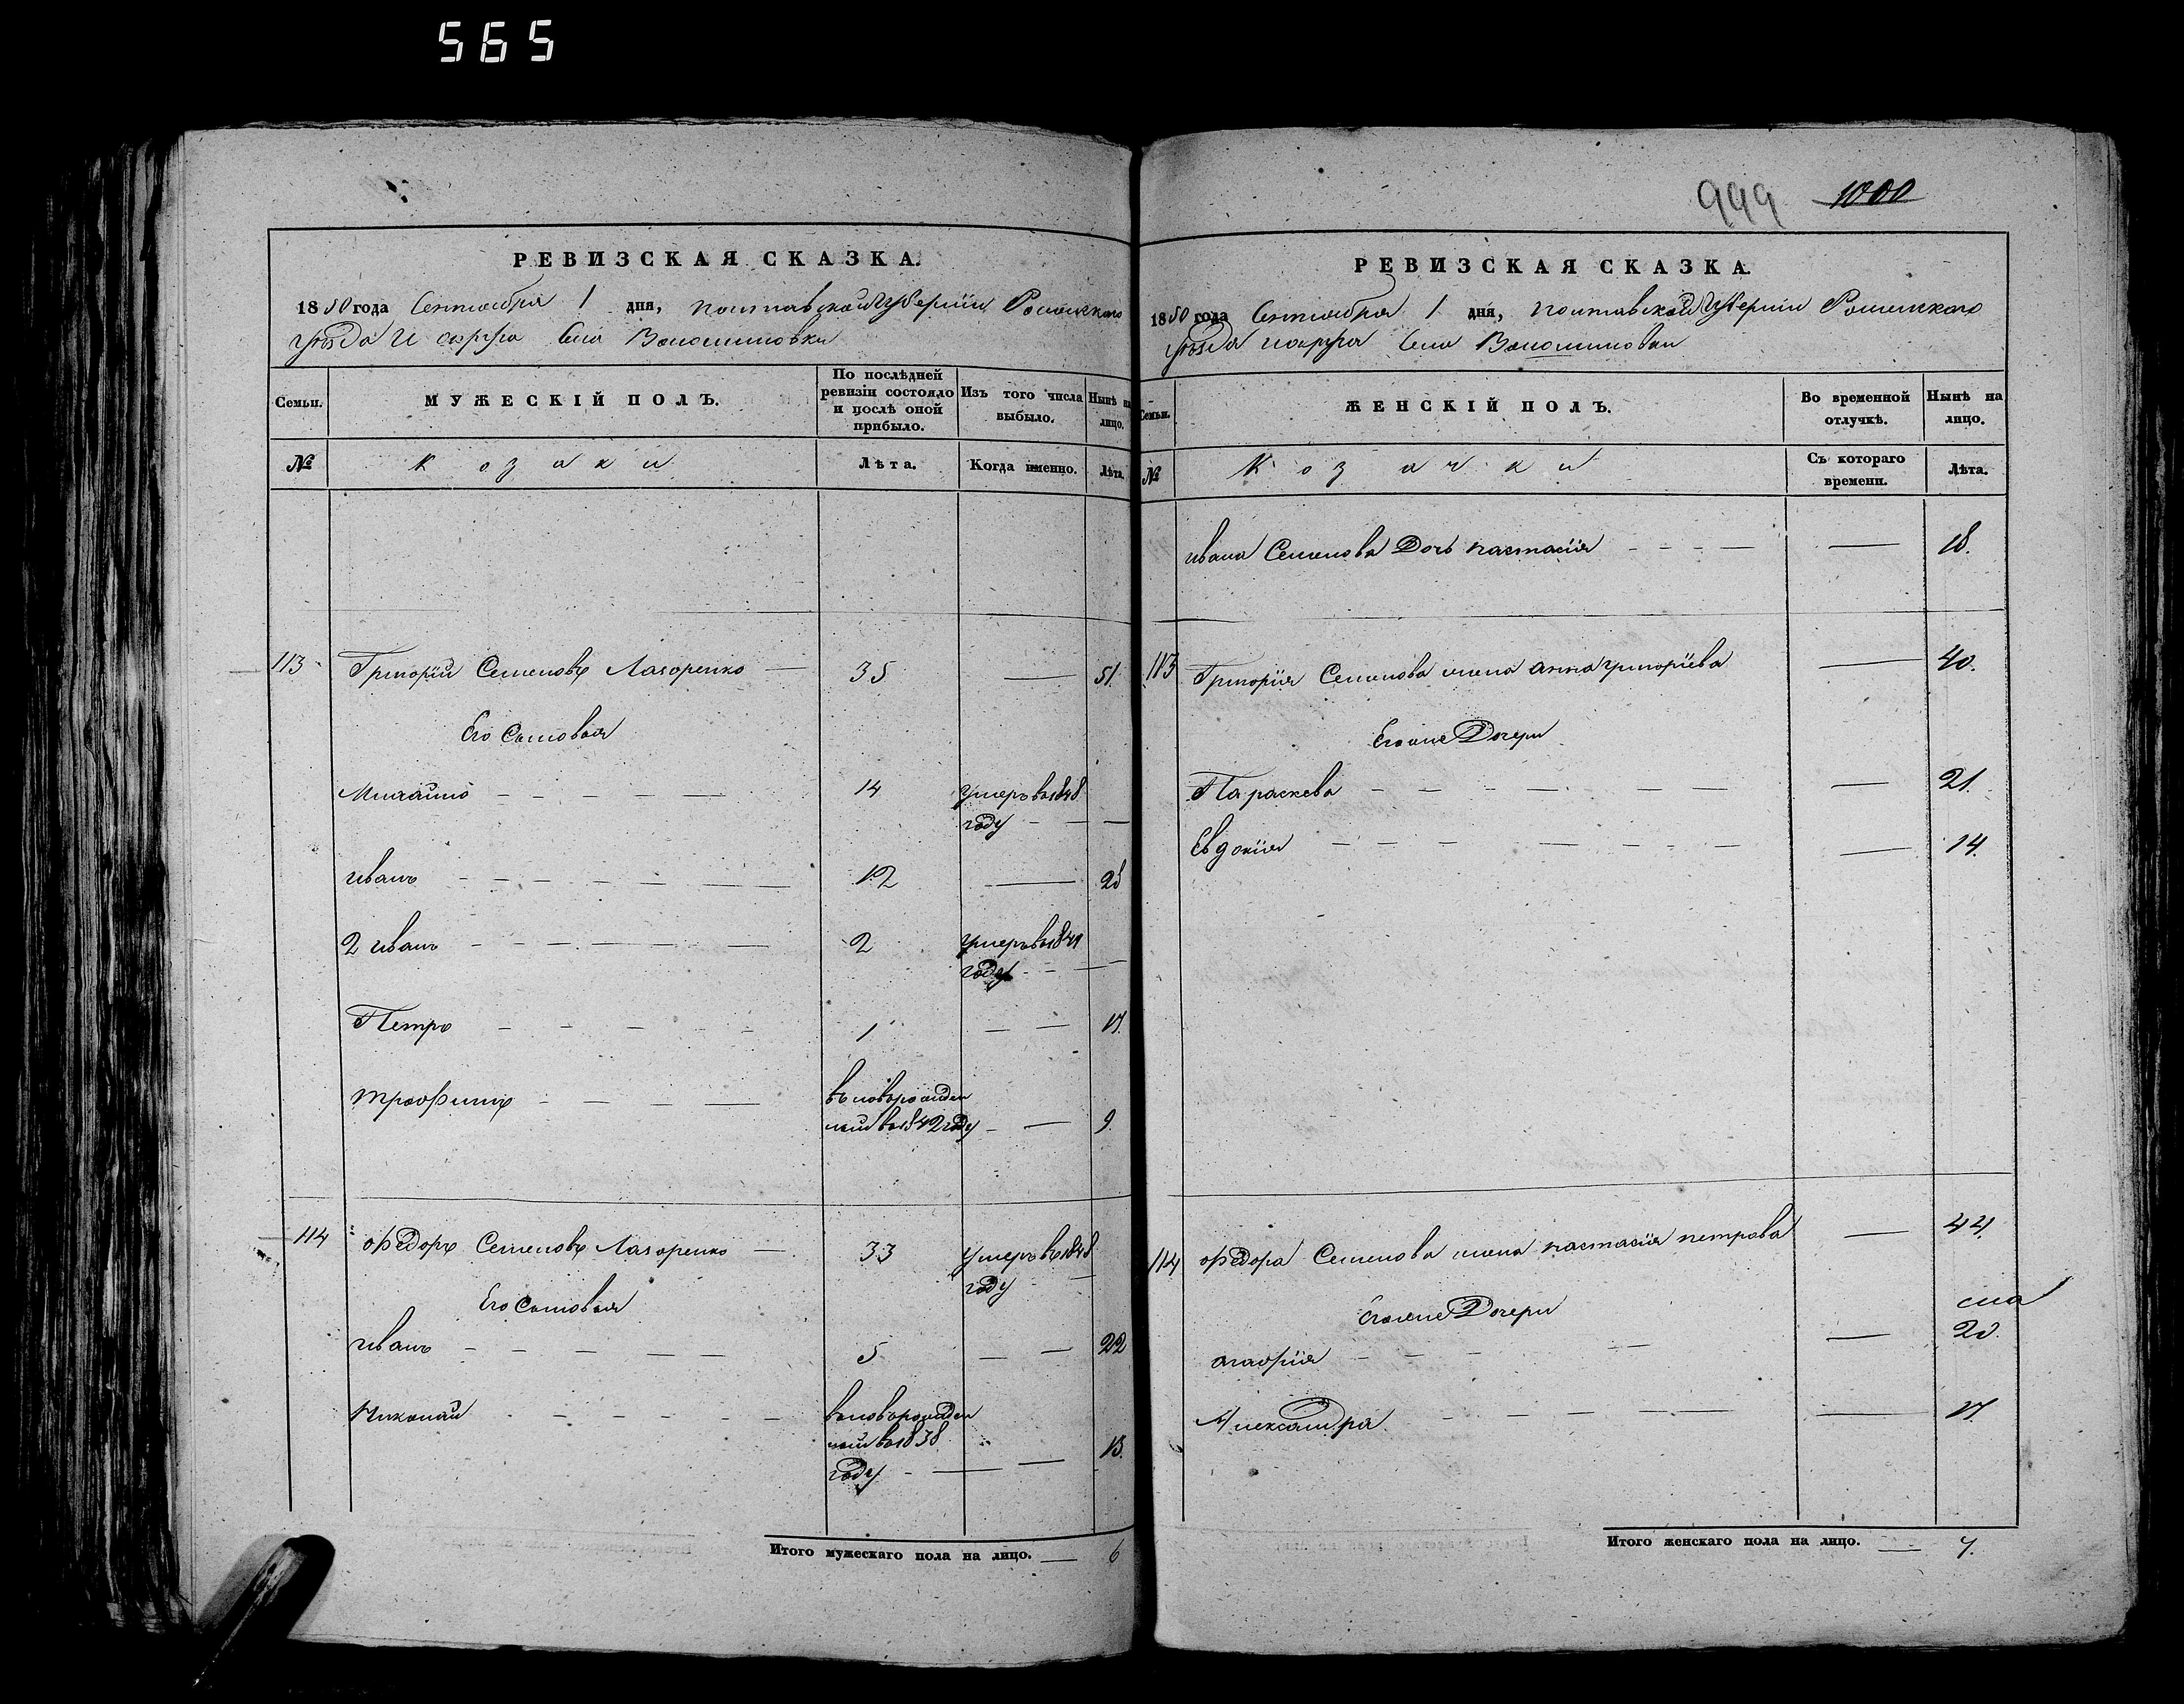 565
999 1000
РЕВИЗСКАЯ СКАЗКА.
1850 года Сентября 1 дня, полтавской губернии Роменскаго
уѣзда и округа села Волошиновки
Семьи.
МУЖЕСКІЙ ПОЛЪ.
По послѣдней ревизіи состояло и послѣ оной прибыло.
Изъ того числа выбыло.
Нынѣ на лицо.
№
козаки
Лѣта.
Когда именно.
Лѣта.
113 Григорій Семеновъ Лазоренко — 35 — 51.
Его Сыновья
Михайло 14 Умеръ в 1848
году
иванъ 12 — 28
2 иванъ 2 Умеръ в 1841
году
Петръ 1 17.
трофимъ вновьрожден
ный в 1842 году 9.
114 федоръ Семеновъ Лазоренко — 33 Умеръ в 1848
году
Его Сыновья
иванъ 5 22
Николай вновьрожден
ный в 1838 13.
году
Итого мужескаго пола на лицо. — 6
РЕВИЗСКАЯ СКАЗКА.
1850 года Сентября 1 дня, полтавской губерніи Роменскаго
уѣзда и округа села Волошиновки
Семьи.
ЖЕНСКІЙ ПОЛЪ.
Во временной отлучкѣ.
Нынѣ на лицо.
№
Козачки
Съ котораго времени.
Лѣта.
ивана Семенова Дочь настасія — 18.
113 Григорія Семенова жена анна григоріева — 40.
Егоже Дочери
Параскева — 21.
Евдокия — 14.
114 федора Семенова жена настасія петрова — 44.
Егоже Дочери
агафия — 20.
Александра — 17
Итого женскаго пола на лицо. — 7.